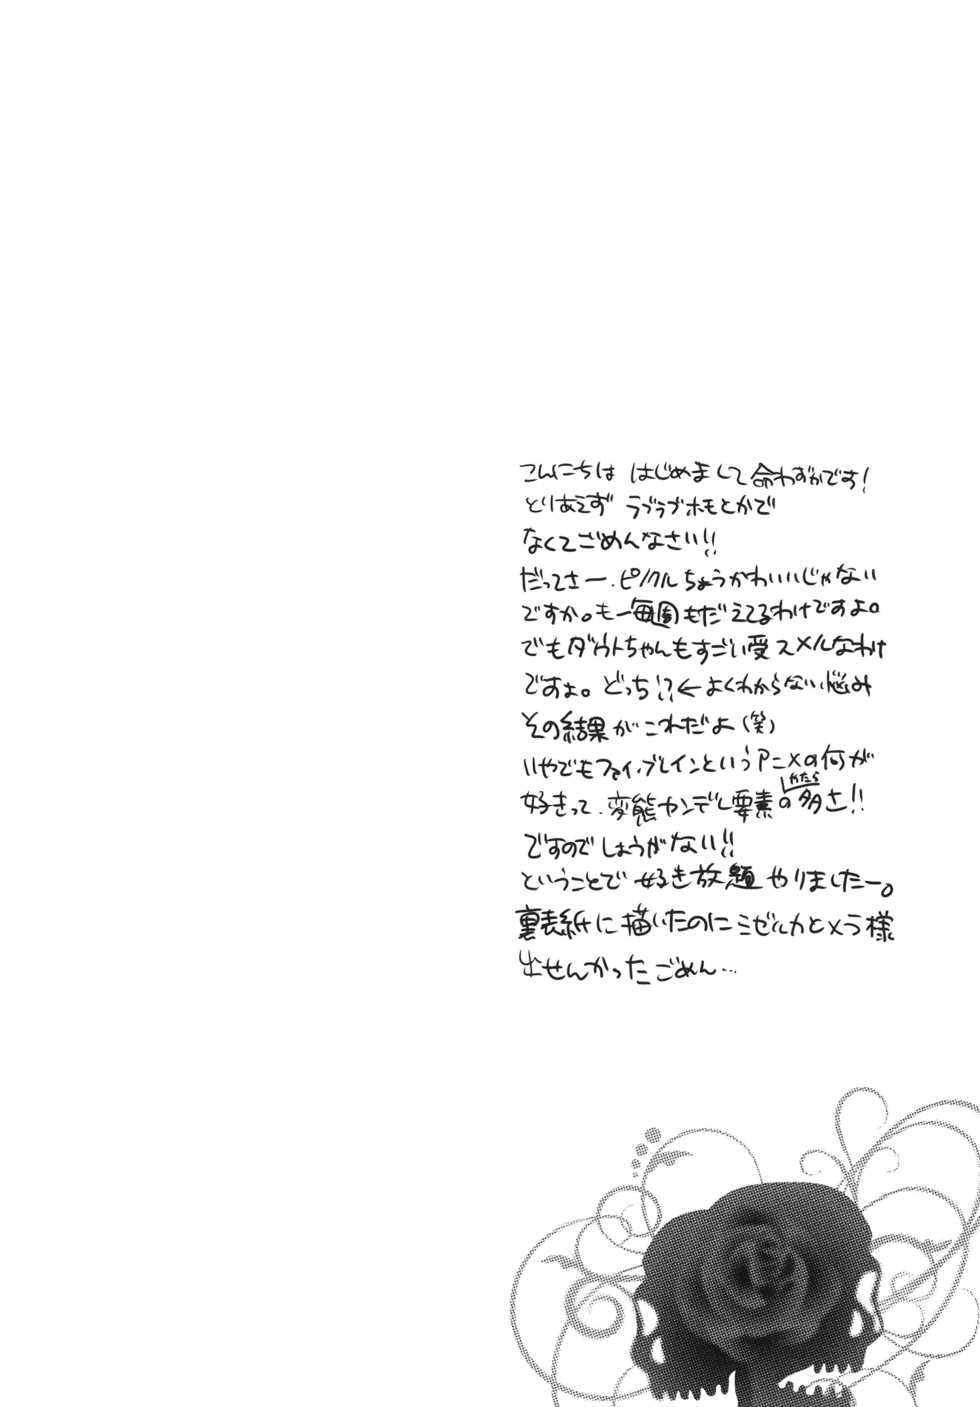 こんにちは はじめまして 命わずかです!
とりあえず ラブラブホモとかで
なくてごめんなさい!!
だってさー、ピノクルちょうかわいいじゃない
ですか。も一毎週もだえてるわけですよ。
でもダウトちゃんもすごい受スメルなわけ
ですよ。どっち!?←よくわからない悩み
その結果がこれだよ(笑)
いやでもファイ・ブレインというアニメの何が
好きって、変態ヤンデレ要素のかたらの多さ!!
ですのでしょうがない!!
ということで 好き放題 やりましたー。
裏表紙に描いたのにミゼルカとメラ様
出せんかったごめん…